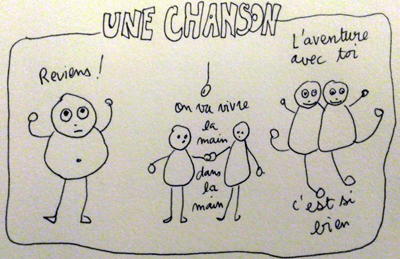 UNE CHANSON
Reviens !
on va vivre
la
main
dans
la
main
L'aventure
avec toi
c'est si
bien